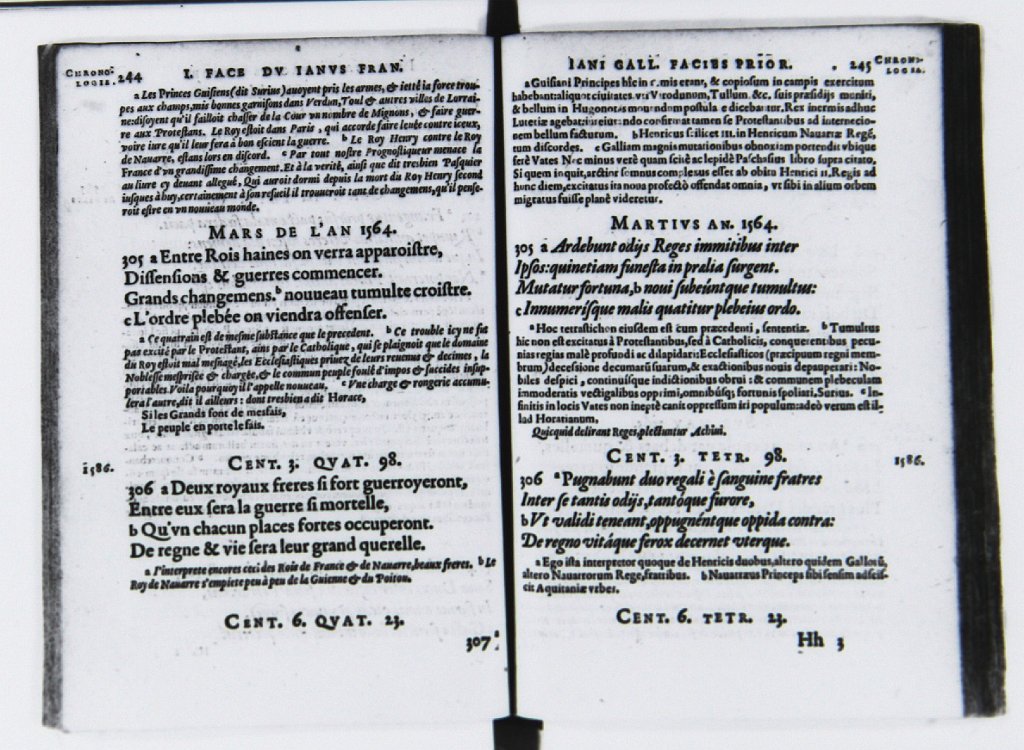 CHRONO-
LOGIE.
244
I. FACE DV IANVS FRAN.
a Les Princes Guisiens (dit Surius) auoyent pris les armes, & ietté la force trou-
pes aux champs, mis bonnes garnisons dans Verdun, Toul & autres villes de Lorrai-
ne: disoyent qu'il failloit chasser de la Cour vn nombre de Mignons, & faire guer-
re aux Protestans. Le Roy estoit dans Paris, qui accorde faire leuée contre iceux,
voire iure qu'il leur fera à bon escient la guerre. b Le Roy Henry contre le Roy
de Nauarre, estans lors en discord. c Par tout nostre Prognostiqueur menace la
France d'vn grandissime changement. Et à la verité, ainsi que dit tresbien Pasquier
au liure cy deuant allegué, Qui auroit dormi depuis la mort du Roy Henry second
iusques à huy, certainement à son resueil il trouueroit tant de changemens, qu'il pense-
roit estre en vn nouueau monde.
MARS DE L'AN 1564.
305 a Entre Rois haines on verra apparoistre,
Dissensions & guerres commencer.
Grands changemens. b nouueau tumulte croistre.
c L'ordre plebée on viendra offenser.
a Ce quatrain est de mesme substance que le precedent. b Ce trouble icy ne fut
pas excité par le Protestant, ains par le Catholique, qui se plaignoit que le domaine
du Roy estoit mal mesnagé, les Ecclesiastiques priuez de leurs reuenus & decimes, la
Noblesse mesprisée & chargée, & le commun peuple foulé d'impos & succides insup-
portables. Voila pourquoy il l'appelle nouueau. c Vne charge & rongerie accumu-
lera l'autre, dit il ailleurs: dont tresbien a dit Horace,
Si les Grands font de mesfais,
Le peuple en porte le fais.
1586.
CENT. 3. QVAT. 98.
306 a Deux royaux freres si fort guerroyeront,
Entre eux sera la guerre si mortelle,
b Qu'vn chacun places fortes occuperont.
De regne & vie sera leur grand querelle.
a I'interprete encores ceci des Rois de France & de Nauarre, beaux freres. b Le
Roy de Nauarre s'empiete peu à peu de la Guienne & du Poitou.
CENT. 6. QVAT. 23.
307
IANI GALL. FACIES PRIOR.
245
CHRONO-
LOGIA.
a Guisiani Principes hic in armis erant, & copiosum in campis exercitum
habebant: aliquot ciuitates, vti Virodunum, Tullum, &c. suis præsidijs meniti,
& bellum in Hugonotas mouendum postulare dicebantur. Rex inermis adhuc
Lutetiæ agebat: iureiurando confirmat tamen se Protestantibus ad internecio-
nem bellum facturum. b Henricus scilicet III. in Henricum Nauarræ Regē,
tum discordes. c Galliam magnis mutationibus obnoxiam portendit vbique
ferè Vates Nec minus verè quam scitè ac lepidè Paschasius libro supra citato,
Si quem inquit, arctior somnus complexus esset ab obitu Henrici II. Regis ad
hunc diem, excitatus ita noua profectò offendat omnia, vt sibi in alium orbem
migratus fuisse planè videretur.
MARTIVS AN. 1564.
305 a Ardebunt odijs Reges immitibus inter
Ipsos: quinetiam funesta in prælia surgent.
Mutatur fortuna, b noui subeúntque tumultus:
c Innumerísque malis quatitur plebeius ordo.
a Hoc tetrastichon eiusdem est cum præcedenti, sententiæ. b Tumultus
hic non est excitatus à Protestantibus, sed à Catholicis, conquerentibus pecu-
nias regias malè profundi ac dilapidari: Ecclesiasticos (præcipuum regni mem-
brum) decessione decumarũ suarum, & exactionibus nouis depauperari: No-
biles despici, continuísque indictionibus obrui: & communem plebeculam
immoderatis vectigalibus opprimi, omnibúsq; fortunis spoliari. Surius. c In-
finitis in locis Vates non ineptè canit oppressum iri populum: adeò verum est il-
lud Horatianum,
Quicquid delirant Reges, plectuntur Achiui.
CENT. 3. TETR. 98.
1586.
306 a Pugnabunt duo regali è sanguine fratres
Inter se tantis odijs, tantóque furore,
b Vt validi teneant, oppugnéntque oppida contra:
De regno vitáque ferox decernet vterque.
a Ego ista interpretor quoque de Henricis duobus, altero quidem Gallorũ,
altero Nauarrorum Rege, fratribus. b Nauarræus Princeps sibi sensim adscis-
cit Aquitaniæ vrbes.
CENT. 6. TETR. 23.
Hh 3